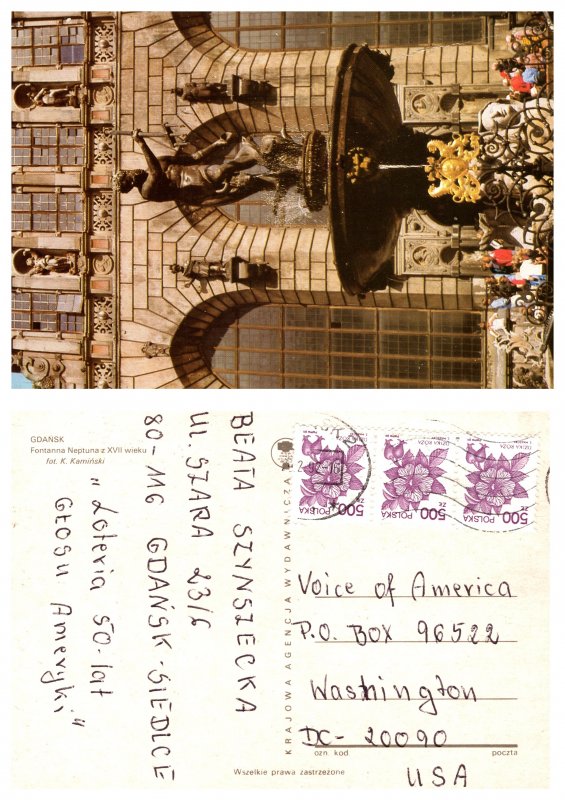 GDAŃSK
Fontanna Neptuna z XVII wieku
fot. K. Kamiński
BEATA SZYNSZECKA
UL. SZARA 23/6
80-116 GDAŃSK-SIEDLCE
"Loteria 50-lat
Głosu Ameryki"
KRAJOWA AGENCJA WYDAWNICZA
DZIKA RÓŻA
500 ZŁ
POLSKA
DZIKA RÓŻA
500 ZŁ
POLSKA
DZIKA RÓŻA
500 ZŁ
POLSKA
Voice of America
P.O. BOX 96522
Washington
DC- 20090
ozn. kod
poczta
USA
Wszelkie prawa zastrzeżone